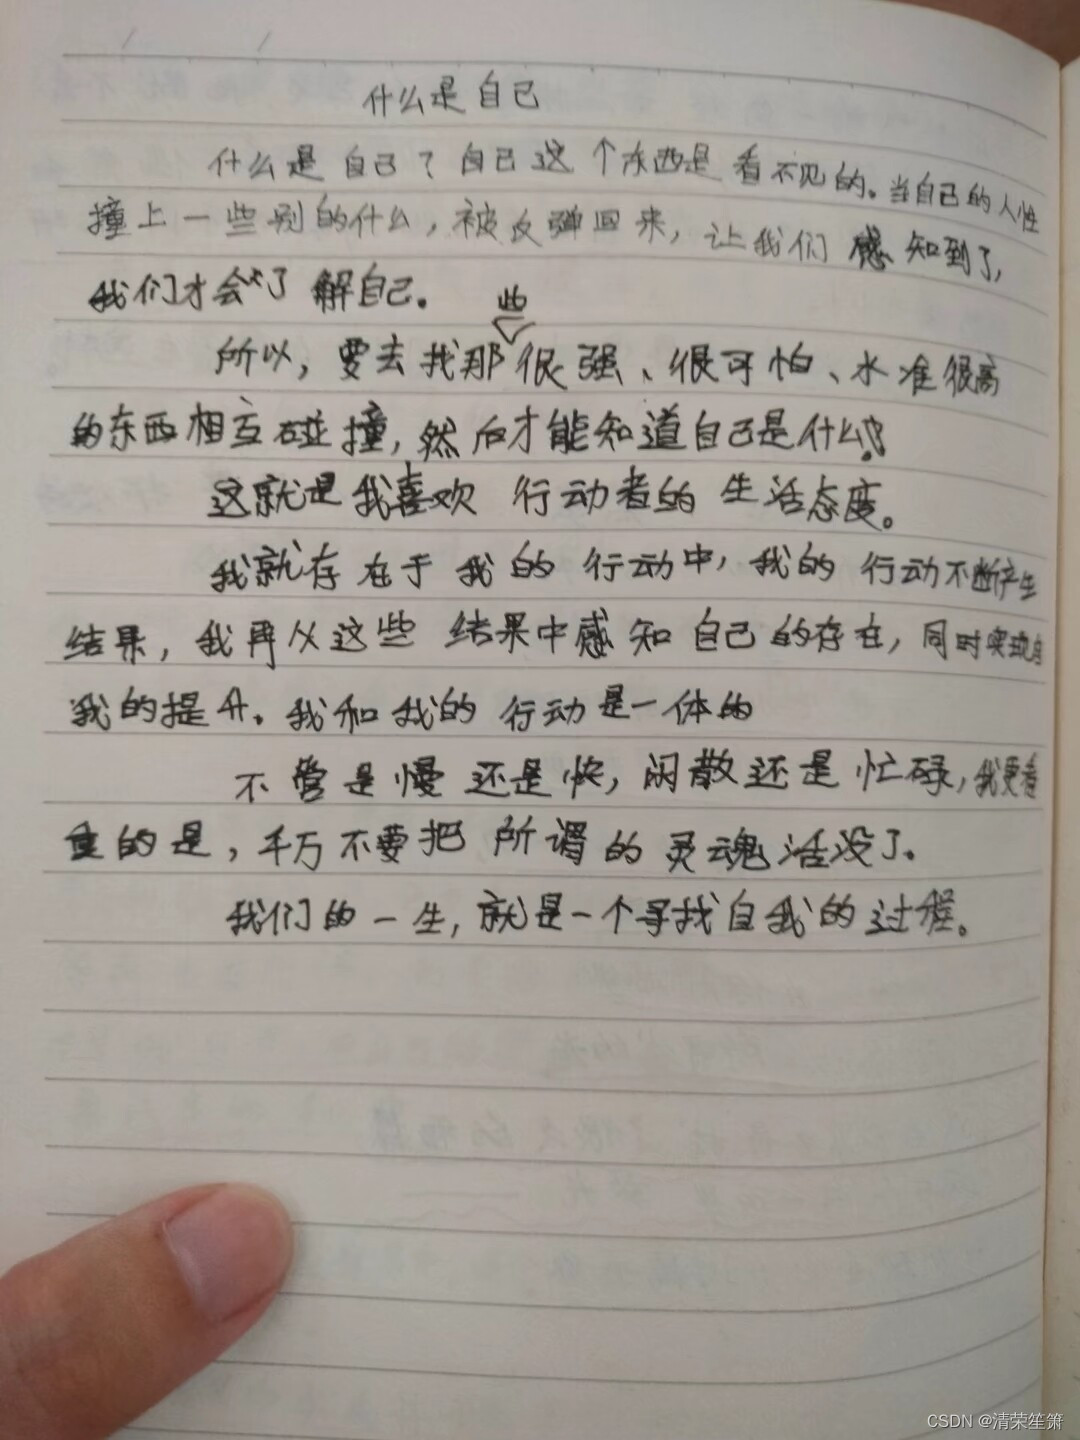 什么是自己
什么是自己？自己这个东西是看不见的。当自己的人性
撞上一些别的什么，被反弹回来，让我们感知到了，
我们才会了解自己。
所以，要去找那些很强、很可怕、水准很高
的东西相互碰撞，然后才能知道自己是什么！
这就是我喜欢行动者的生活态度。
我就存在于我的行动中，我的行动不断产生
结果，我再从这些结果中感知自己的存在，同时实现自
我的提升。我和我的行动是一体的
不管是慢还是快，闲散还是忙碌，我更看
重的是，千万不要把所谓的灵魂活没了。
我们的一生，就是一个寻找自我的过程。
CSDN @清荣笙箫